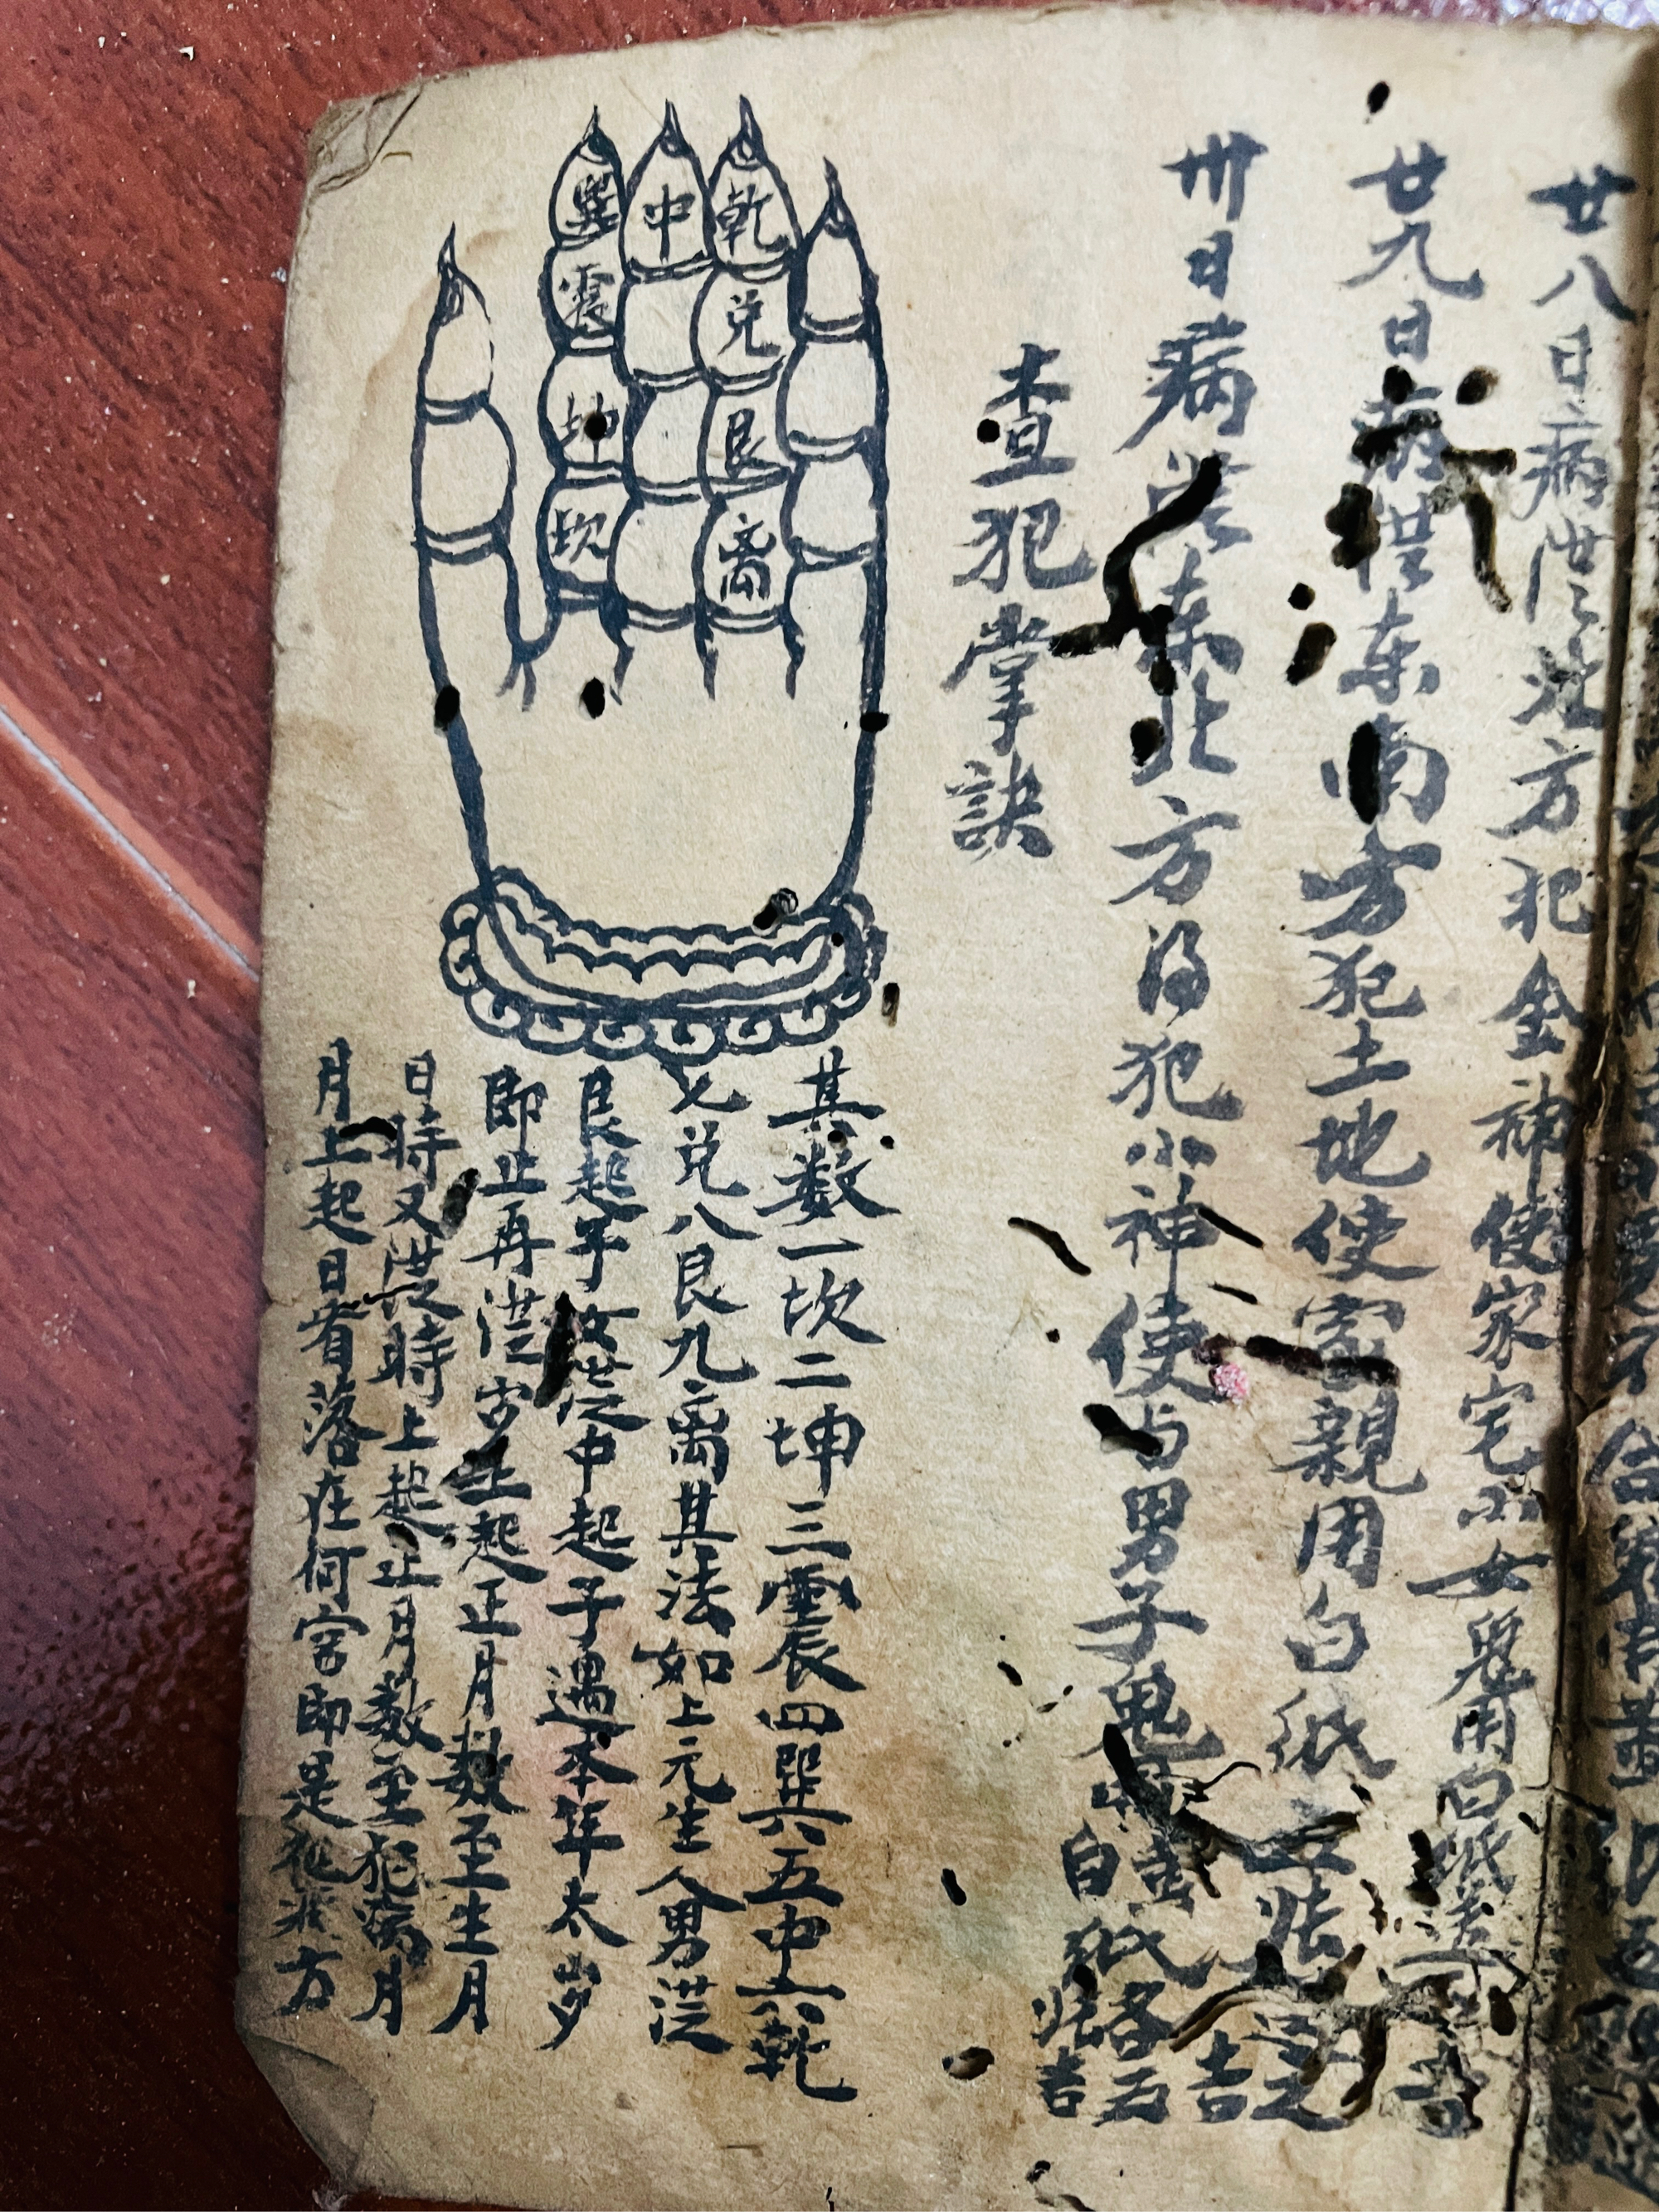 廿八日病従北方犯金神使家宅小女鬼用白紙送
廿九日病従东南方犯土地使家親用白纸
送之吉
卅日病従东北方得犯小神使与男子鬼
白纸各五
张吉
查犯掌訣
巽 中 乾
震 兑
坤 艮
坎 离
其数一坎二坤三震四巽五中六乾
七兑八艮九离其法如上元生人男従
艮起子女従中起子遇本年太岁
即止再従岁上起正月数至生月
日時又従時上起正月数至犯病月
月上起日看落在何宮即是犯病方